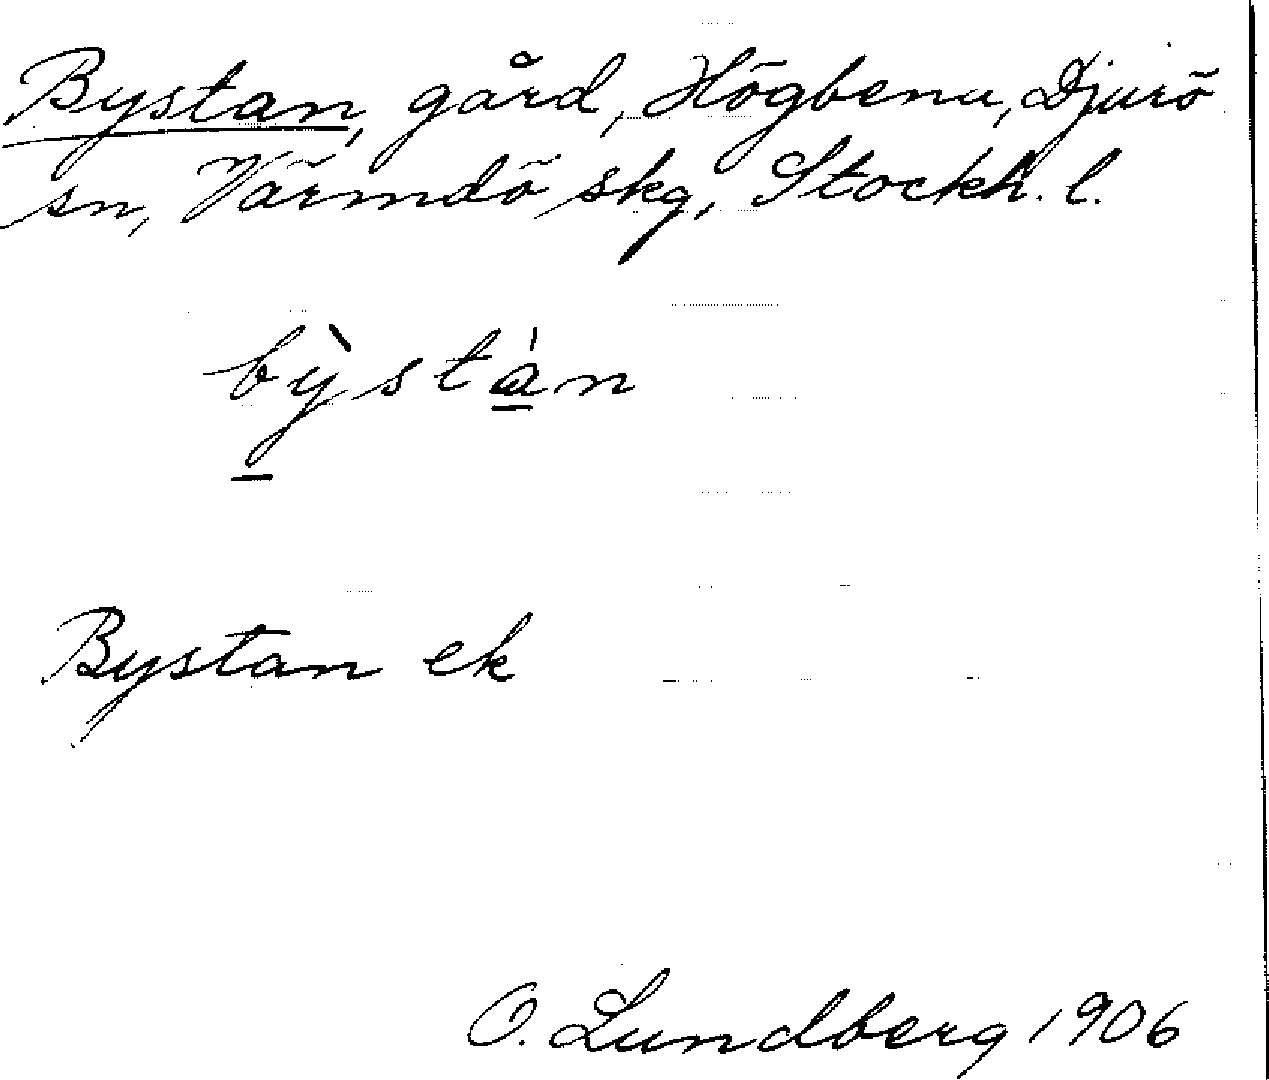 Bystan, gård, Högbenu, Djurö
sn, Värmdö skg, Stockh. l.
bỳstán
Bystan ek
O. Lundberg 1906